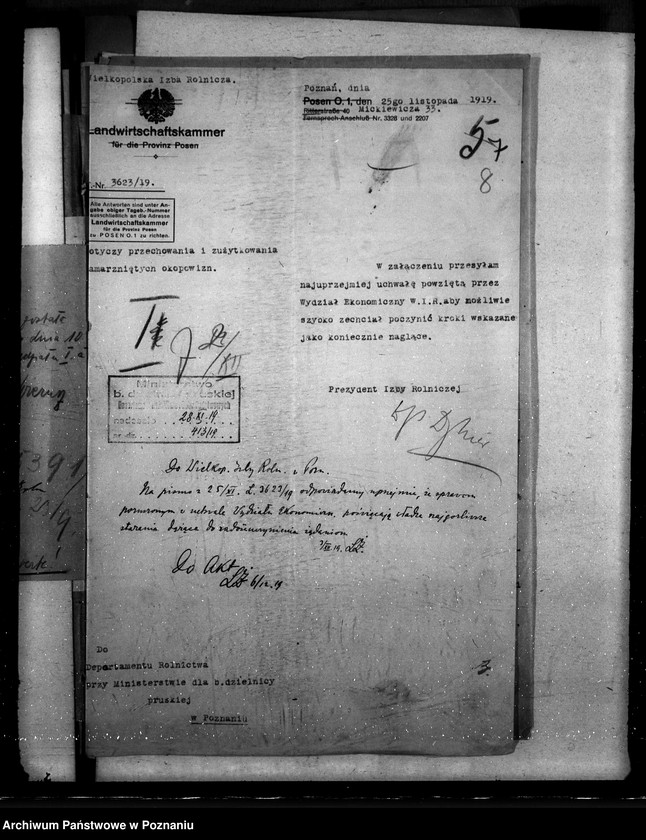 ielkopolska Izba Rolnicza.
Landwirtschaftskammer
für die Provinz Posen
.-Nr. 3623/19.
Alle Antworten sind unter An-
gabe obiger Tageb.-Nummer
ausschließlich an die Adresse
Landwirtschaftskammer
für die Provinz Posen
zu POSEN O. 1 zu richten.
Poznań, dnia
Posen O. 1, den 25go listopada 1919.
Ritterstraße 40 Mickiewicza 33.
Fernsprech-Anschluß Nr. 3326 und 2207
57
8
otyczy przechowania i zużytkowania
amarzniętych okopowizn.
W załączeniu przesyłam
najuprzejmiej uchwałę powziętą przez
Wydział Ekonomiczny W.I.R.aby możliwie
szybko zechciał poczynić kroki wskazane
jako koniecznie naglące.
Prezydent Izby Rolniczej
Ministerstwo
nadeszło 28.XI.19
413/19
Do Wielkop. Izby Roln. w Pozn.
Na pismo z 25/XI. L. 3623/19 odpowiadamy uprzejmie, że sprawom
poruszonym w uchwale Wydziału Ekonomiczn. poświęcają władze
starania dążące do zadośćuczynienia żądaniom
Do Akt
6/12.19
Do
Departamentu Rolnictwa
przy Ministerstwie dla b.dzielnicy
pruskiej
w Poznaniu
3.
Archiwum Państwowe w Poznaniu